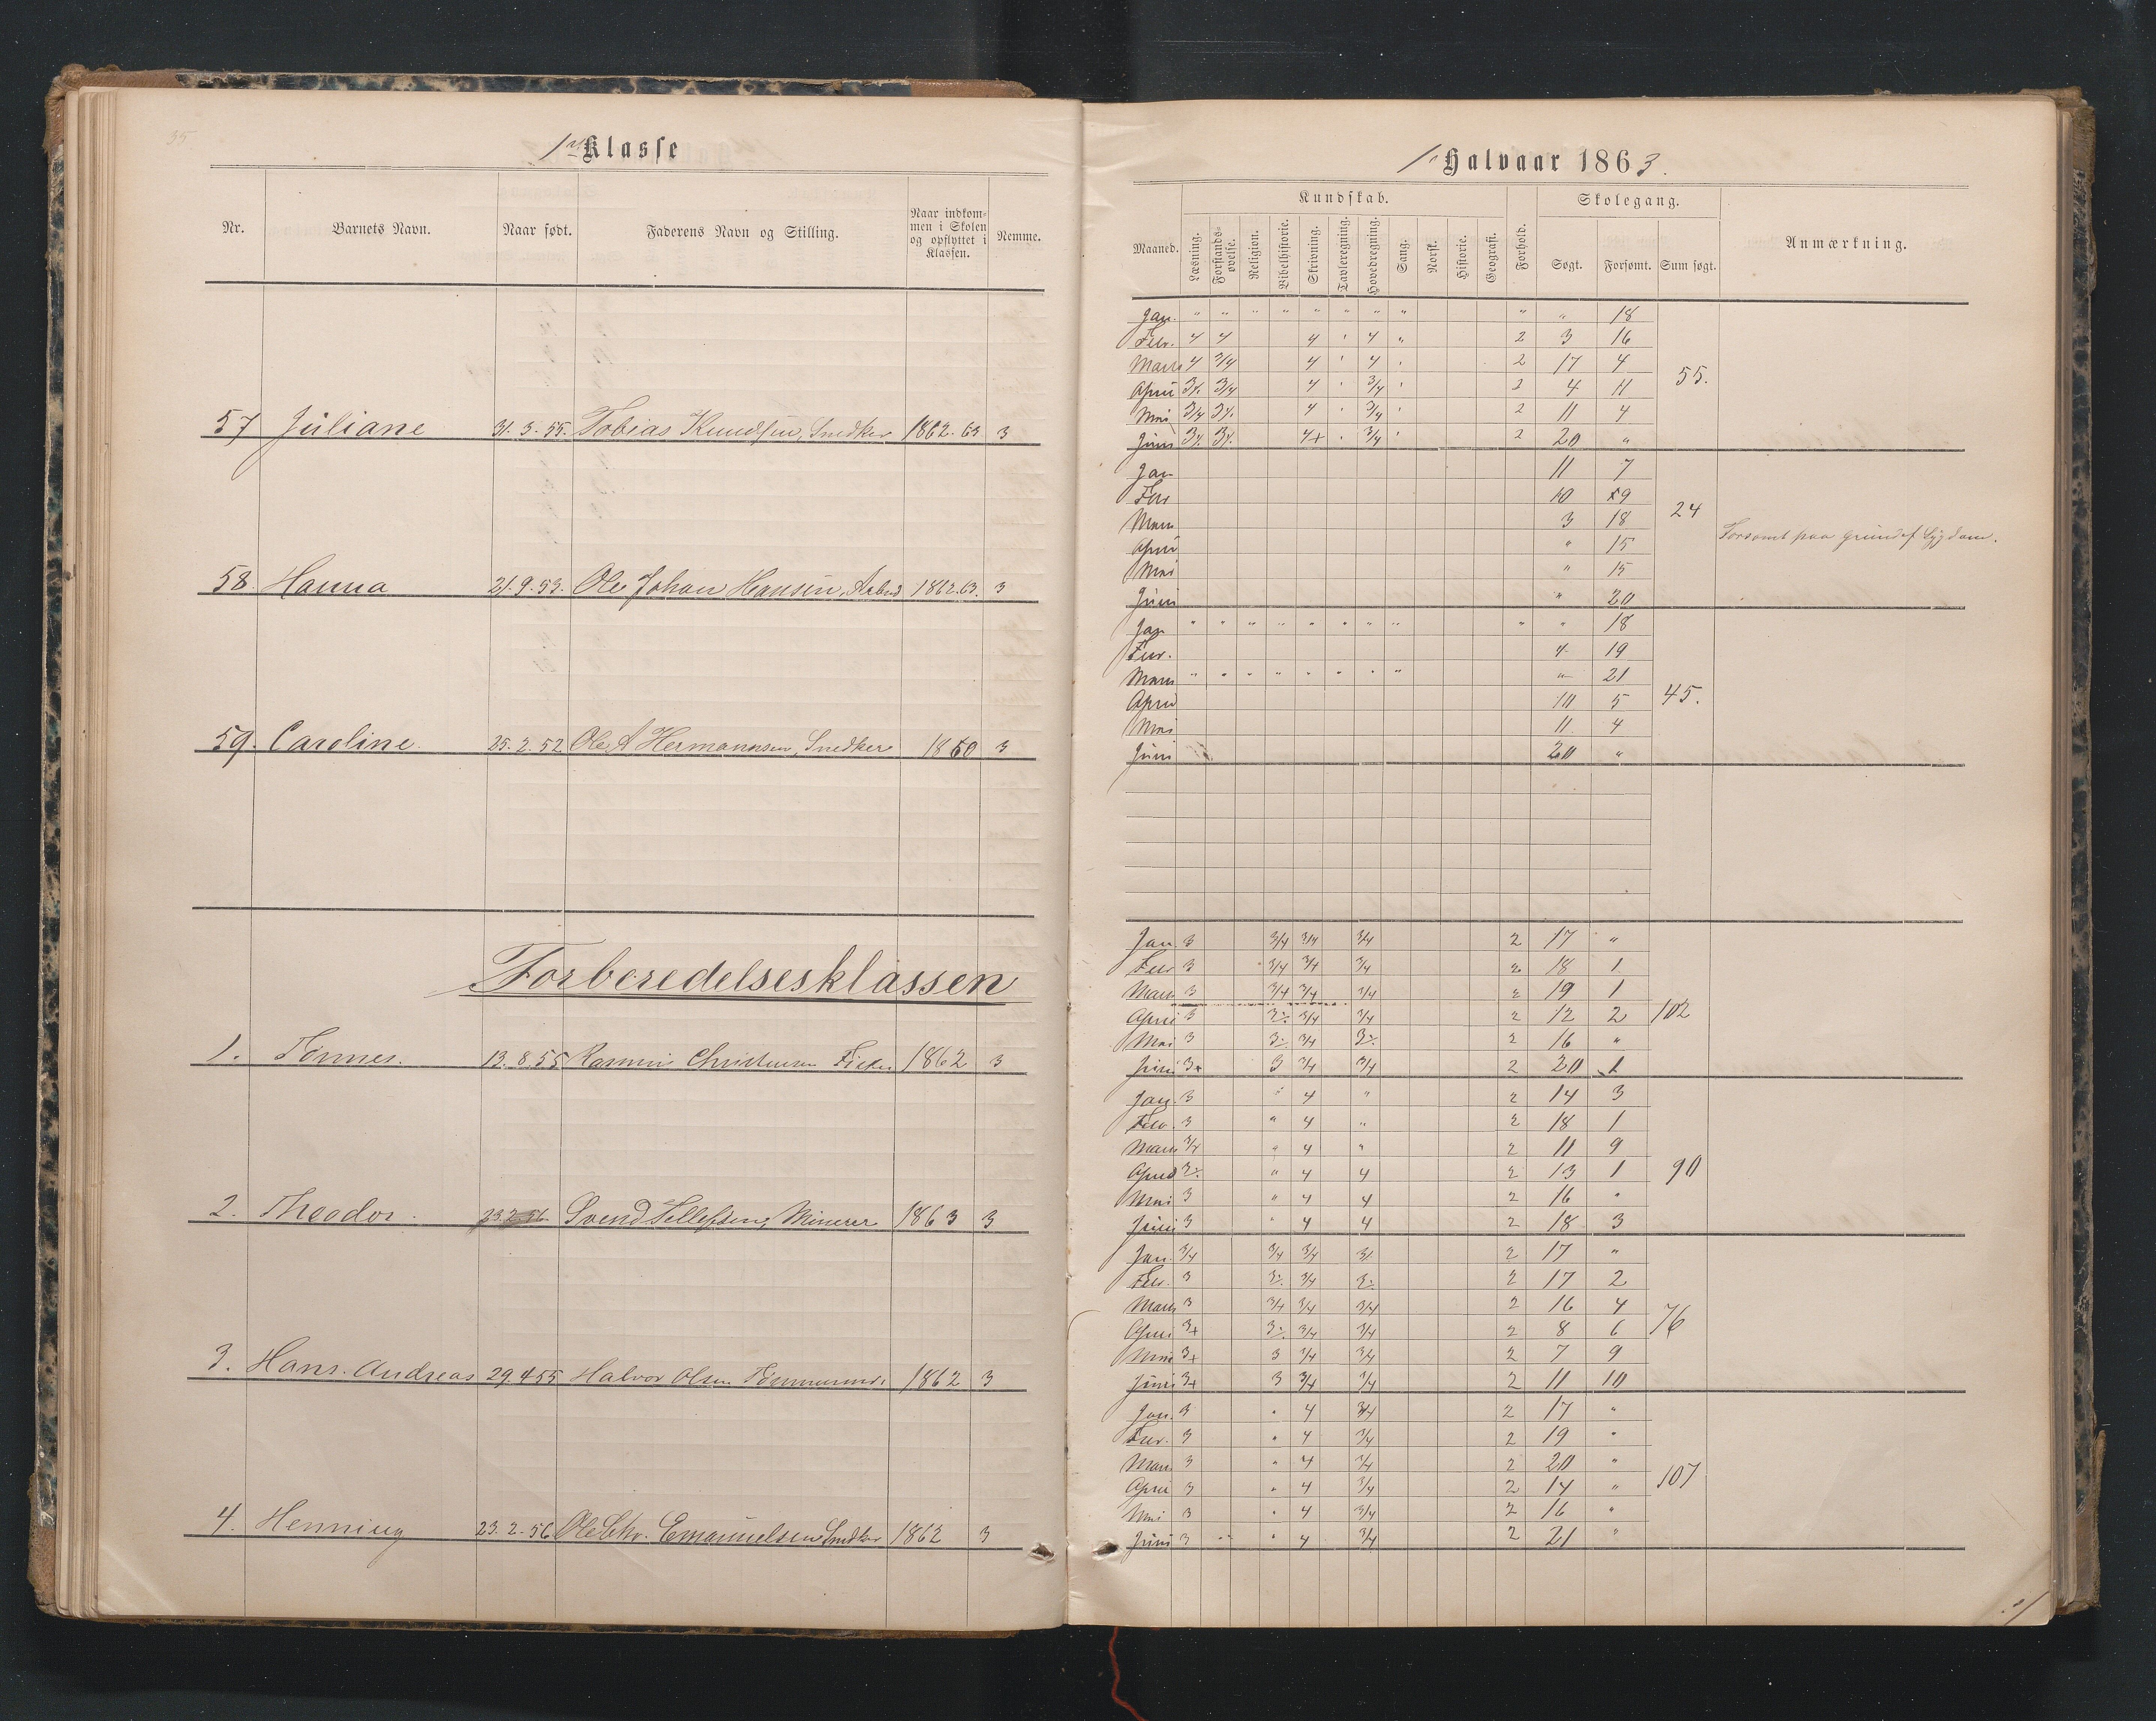 35
1ste Klasse
Nr. Barnets Navn. Naar født. Faderens Navn og Stilling. Naar indkom-
men i Skolen
og opflyttet i
Klassen. Nemme.
57 Juliane 31. 3. 55. Tobias Knudsen, Snedker 1862. 63 3
58. Hanna 21. 9. 53. Ole Johan Hansen, Arbmd 1862. 63. 3
59. Caroline. 25. 2. 52 Ole A Hermannsen, Snedker 1860 3
Forberedelsesklassen
1. Tønnes. 13. 8. 55 Christensen 1862 3
2. Theodor. 23. 2. 56 Svend Tellefsen, Minerer 1863 3
3. Hans. Andreas 29. 4 55 Halvor Olsen Tømmermd. 1862 3
4. Henning 23. 2. 56 Ole Chr. Emanuelsen Snedker 1862 3
1. Halvaar 1863.
Kundskab. Skolegang.
Maaned. Læsning. Forstands-
øvelse. Religion. Bibelhistorie. Skrivning. Tavleregning. Hovedregning. Sang. Norsk. Historie. Geografi. Forhold. Søgt. Forsømt. Sum søgt. Anmærkning.
Jan. " " " " " " " " " " 18
Febr. 4 4 4 " 4 " 2 3 16
Marts 4 3/4 4 " 4 " 2 17 4 55.
April 3/4 3/4 4 " 3/4 " 2 4 11
Mai 3/4 3/4 4 " 3/4 " 2 11 4
Juni 3/4 3/4 4+ " 3/4 " 2 20 "
Jan 11 7
Febr 10 9
Marts 3 18 24
April " 15 Forsømt paa Grund af Sygdom.
Mai " 15
Juni " 20
Jan " " " " " " " " " " 18
Febr. 4 19
Marts " " " " " " " " " 21
April 10 5 45.
Mai 11 4
Juni 20 "
Jan. 3 3/4 3/4 3/4 2 17 "
Febr 3 3/4 3/4 3/4 2 18 1
Marts 3 3/4 3/4 3/4 2 19 1
April 3 3÷ 3/4 3/4 2 12 2 102
Mai 3 3÷ 3/4 3÷ 2 16 "
Juni 3+ 3 3/4 3/4 2 20 1
Jan. 3 " 4 " 2 14 3
Febr. 3 " 4 " 2 18 1
Marts 3/4 " 4 " 2 11 9
April 3÷ " 4 4 2 13 1 90
Mai 3 " 4 4 2 16 "
Juni 3 " 4 4 2 18 3
Jan. 3/4 3/4 3/4 3/ 2 17 "
Febr. 3 3÷ 3/4 3÷ 2 17 2
Marts 3 3/4 3/4 3/4 2 16 4
April 3+ 3÷ 3/4 3/4 2 8 6 76
Mai 3+ 3 3/4 3/4 2 7 9
Juni 3+ 3 3/4 3/4 2 11 10
Jan. 3 " 4 3/4 2 17 "
Febr. 3 " 4 3/4 2 19 "
Marts 3 " 4 3/4 2 20 "
April 3 " 4 3/4 2 14 " 107
Mai 3 " 4 3/4 2 16 "
Juni 3 " " 4 3/4 2 21 "